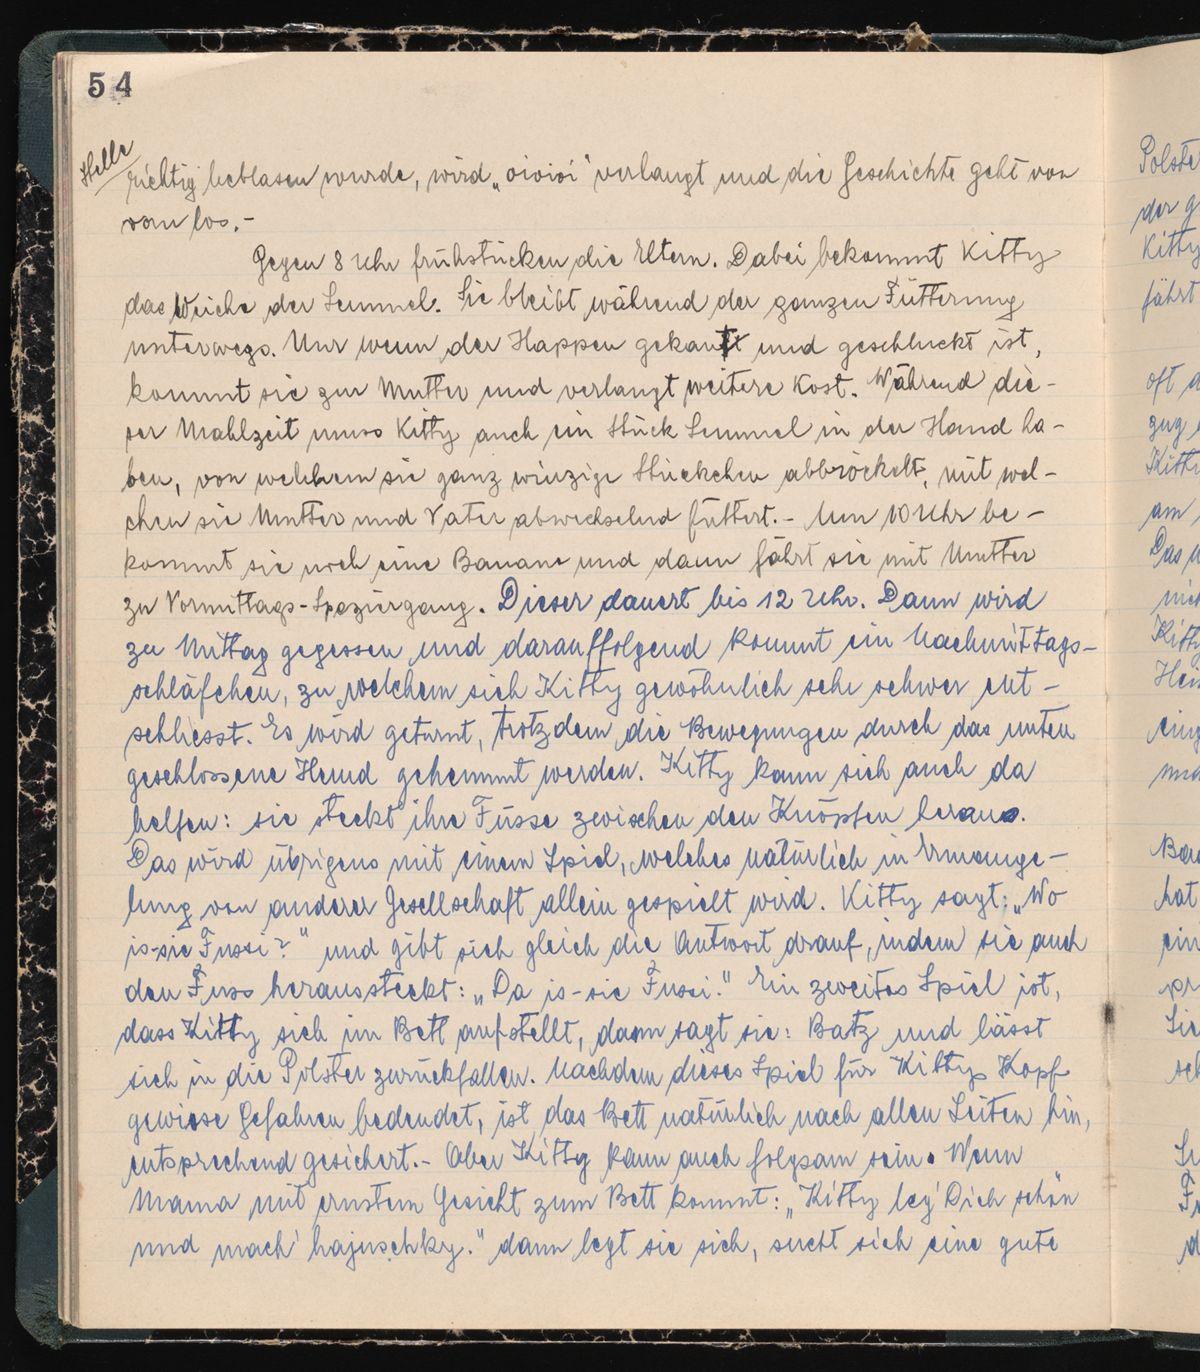 54
Stelle
richtig beblasen wurde, wird „oioioi" verlangt und die Geschichte geht von
vorn los.-
Gegen 8 Uhr frühstücken die Eltern. Dabei bekommt Kitty
das Weiche der Semmel. Sie bleibt während der ganzen Fütterung
unterwegs. Nur wenn der Happen gekaut und geschluckt ist,
kommt sie zur Mutter und verlangt weitere Kost. Während die-
ser Mahlzeit muss Kitty auch ein Stück Semmel in der Hand ha-
ben, von welchem sie ganz winzige Stückchen abbröckelt, mit wel-
chen sie Mutter und Vater abwechselnd füttert.- Um 10 Uhr be-
kommt sie noch eine Banane und dann fährt sie mit Mutter
zu Vormittags-Spaziergang. Dieser dauert bis 12 Uhr. Dann wird
zu Mittag gegessen und darauffolgend kommt ein Nachmittags-
schläfchen, zu welchem sich Kitty gewöhnlich sehr schwer ent-
schliesst. Es wird geturnt, trotzdem die Bewegungen durch das unten
geschlossene Hemd gehemmt werden. Kitty kann sich auch da
helfen: sie steckt ihre Füsse zwischen den Knöpfen heraus.
Das wird übrigens mit einem Spiel, welches natürlich in Ermange-
lung von anderer Gesellschaft allein gespielt wird. Kitty sagt: „Wo
is-sie Fussi?" und gibt sich gleich die Antwort drauf, indem sie auch
den Fuss heraussteckt: „Da is-sie Fussi." Ein zweites Spiel ist,
dass Kitty sich im Bett aufstellt, dann sagt sie: Batz und lässt
sich in die Polster zurückfallen. Nachdem dieses Spiel für Kittys Kopf
gewisse Gefahren bedeudet, ist das Bett natürlich nach allen Seiten hin,
entsprechend gesichert.- Aber Kitty kann auch folgsam sein. Wenn
Mama mit ernstem Gesicht zum Bett kommt: „Kitty leg' Dich schön
und mach' hajuschky." dann legt sie sich, sucht sich eine gute
Polste
der g
Kitty
fährt
oft d
zug
Kitty
am
Das
Kitty
ein
hat
ein
pr
Sie
sch